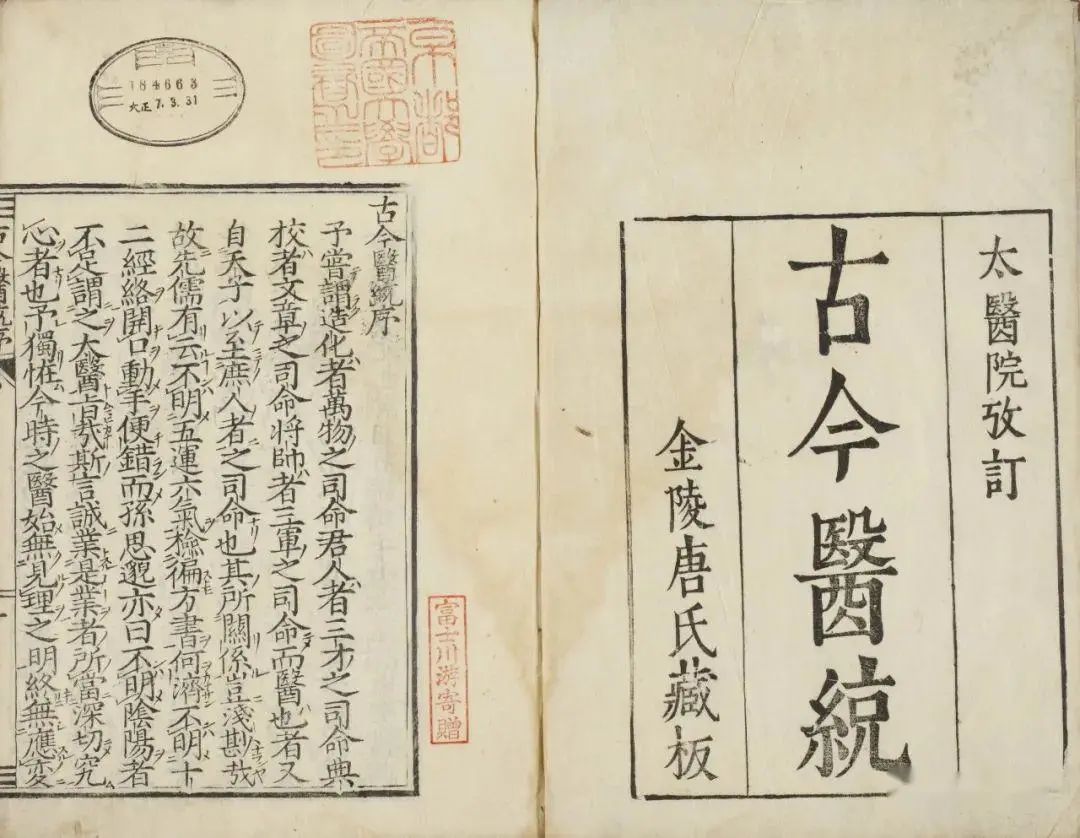 太醫院攷訂
古今醫統
金陵唐氏藏板
京都
帝國大學
圖書之印
184663
大正 7.3.31
古今醫統序
予嘗謂造化者萬物之司命君人者三才之司命典
校者文章之司命將帥者三軍之司命而醫也者又
自天子以至庶人者之司命也其所關係豈淺尠哉
故先儒有云不明五運六氣檢徧方書何濟不明十
二經絡開口動手便錯而孫思邈亦曰不明陰陽者
不足謂之大醫旨哉斯言誠業是業者所當深切究
心者也予獨恠今時之醫始無見理之明終無應変
古今醫統序
富士川游寄贈